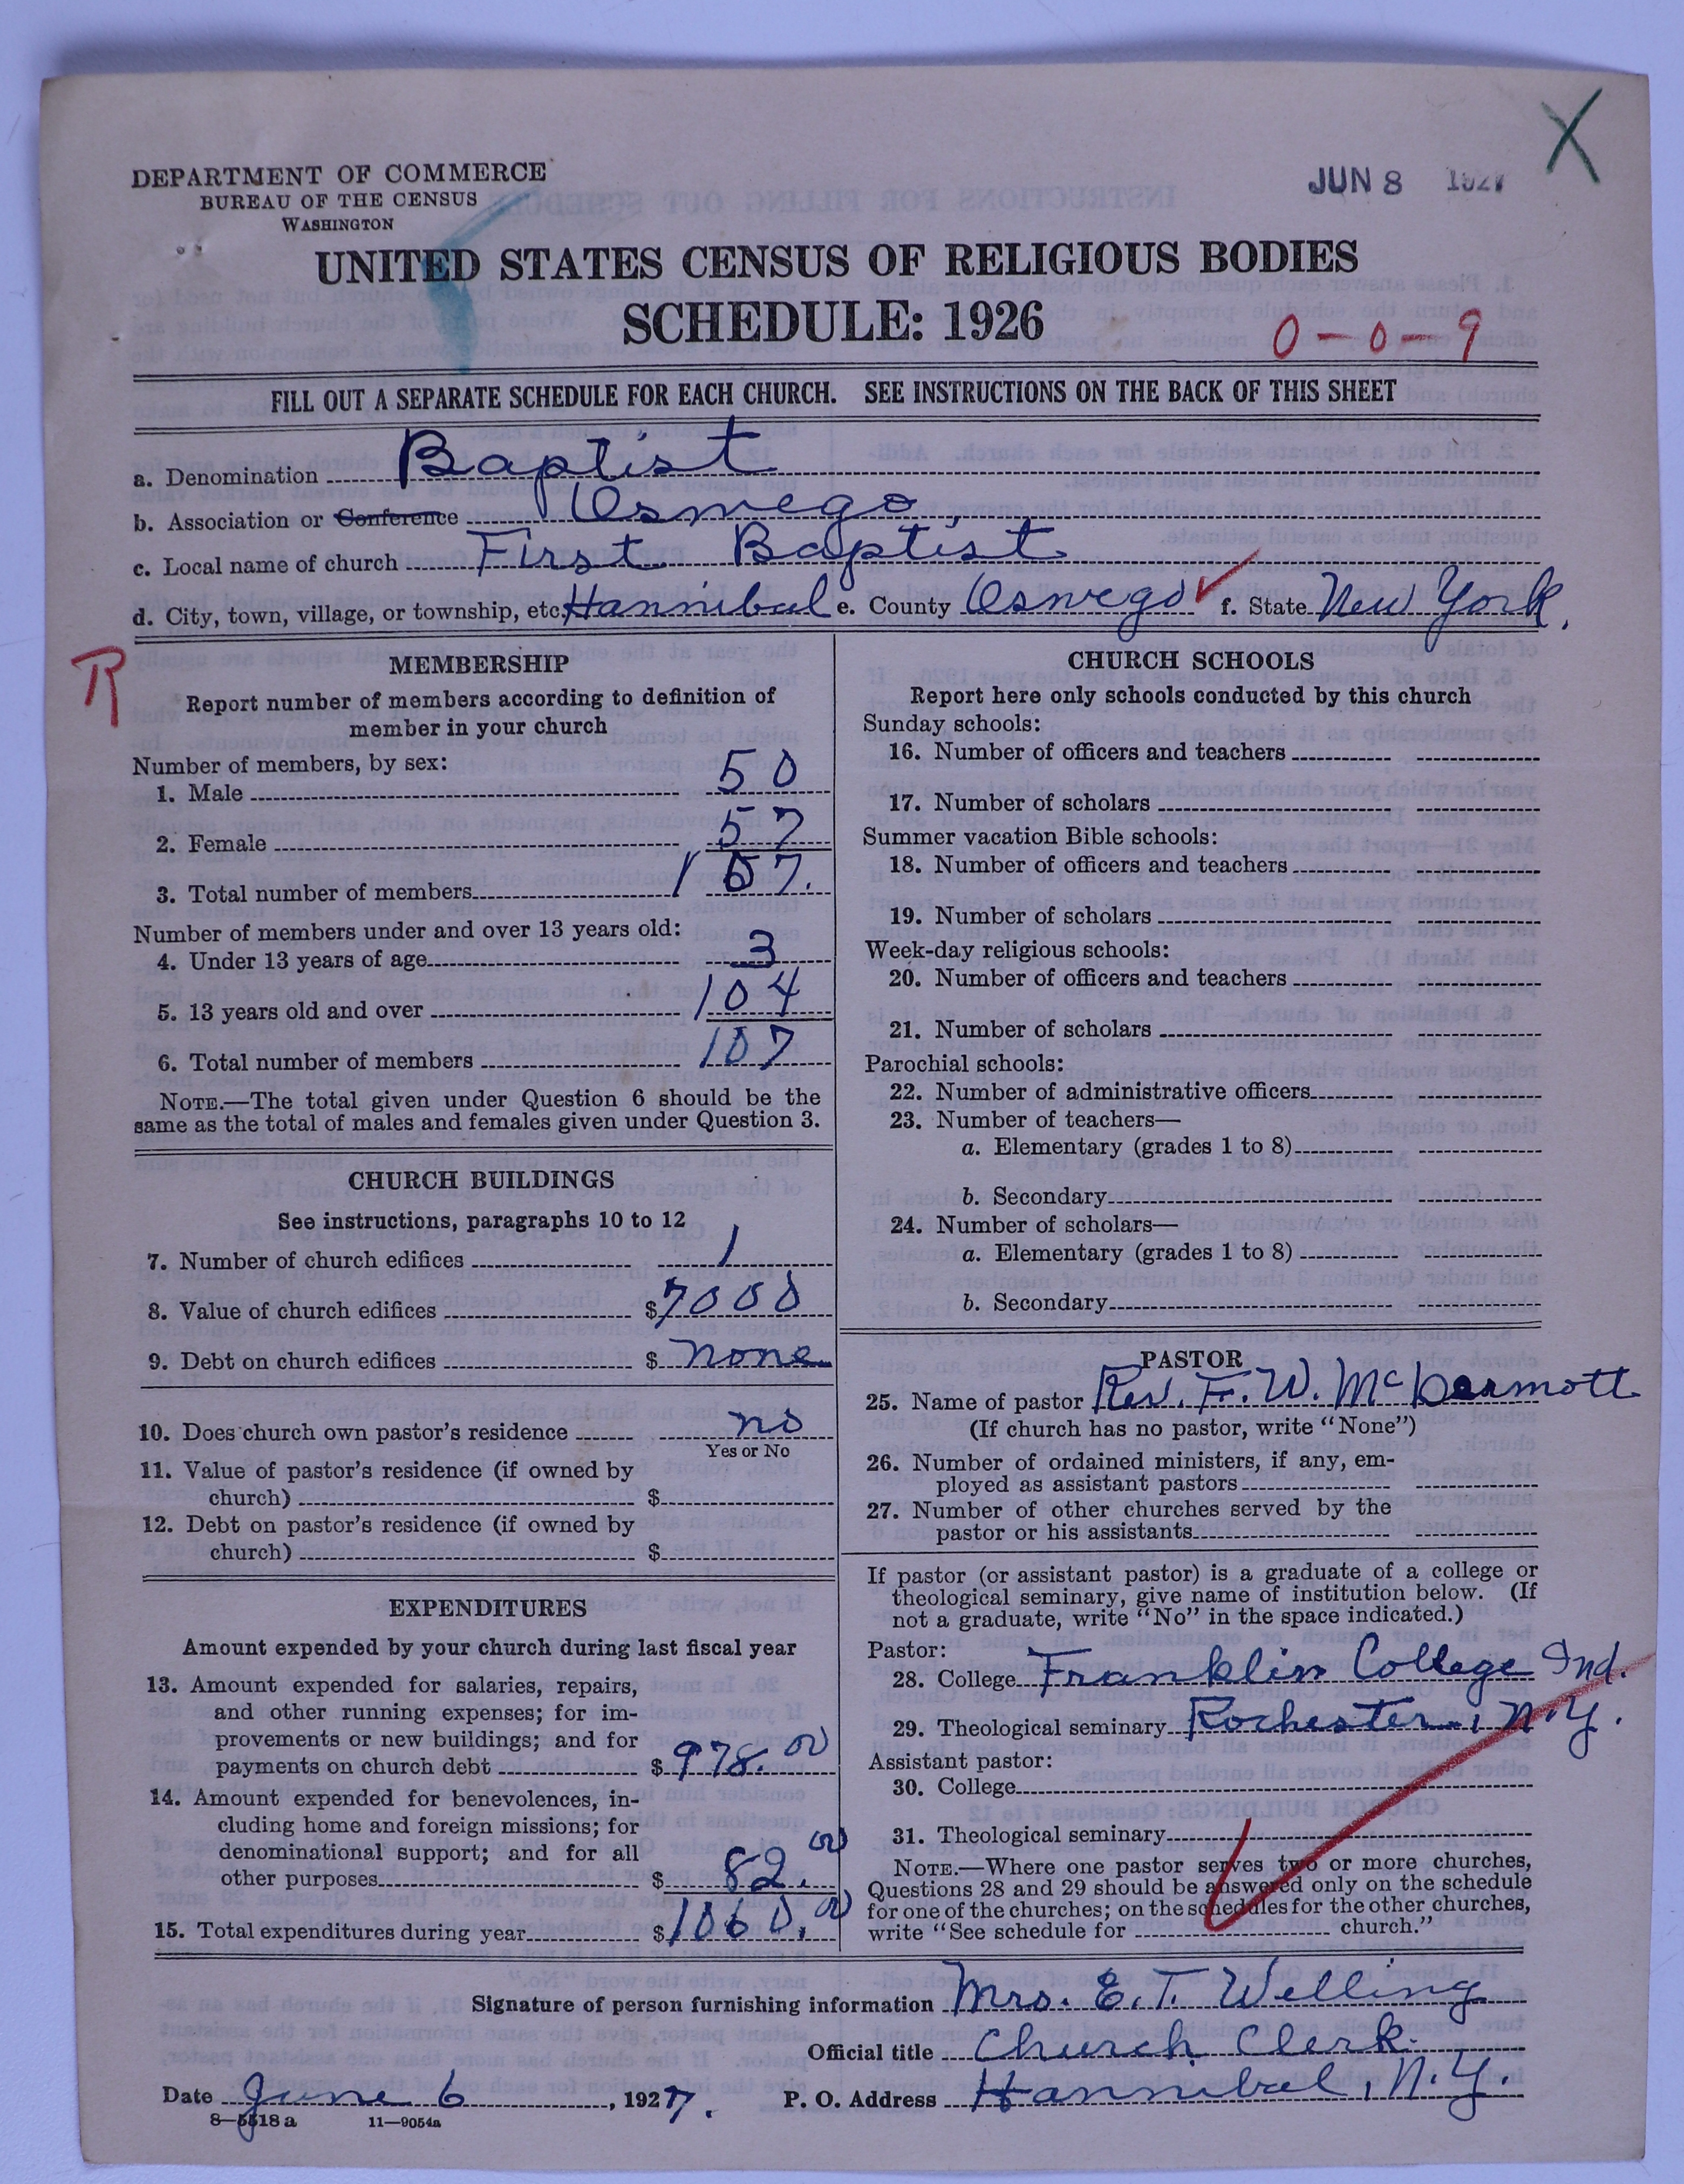 DEPARTMENT OF COMMERCE
BUREAU OF THE CENSUS
WASHINGTON
JUN 8 1927
X
UNITED STATES CENSUS OF RELIGIOUS BODIES
SCHEDULE: 1926
0-0-9
FILL OUT A SEPARATE SCHEDULE FOR EACH CHURCH. SEE INSTRUCTIONS ON THE BACK OF THIS SHEET
a. Denomination Baptist
b. Association or Conference Oswego
c. Local name of church First Baptist
d. City, town, village, or township, etc. Hannibal e. County Oswego f. State New York.
R
MEMBERSHIP
Report number of members according to definition of
member in your church
Number of members, by sex:
1. Male 50
2. Female 57
3. Total number of members 107.
Number of members under and over 13 years old:
4. Under 13 years of age 3
5. 13 years old and over 104
6. Total number of members 107
NOTE.—The total given under Question 6 should be the
same as the total of males and females given under Question 3.
CHURCH BUILDINGS
See instructions, paragraphs 10 to 12
7. Number of church edifices 1
8. Value of church edifices $7000
9. Debt on church edifices $ none
10. Does church own pastor's residence no
Yes or No
11. Value of pastor's residence (if owned by
church) $
12. Debt on pastor's residence (if owned by
church) $
EXPENDITURES
Amount expended by your church during last fiscal year
13. Amount expended for salaries, repairs,
and other running expenses; for im-
provements or new buildings; and for
payments on church debt $978.00
14. Amount expended for benevolences, in-
cluding home and foreign missions; for
denominational support; and for all
other purposes $ 82.00
15. Total expenditures during year $1060.00
CHURCH SCHOOLS
Report here only schools conducted by this church
Sunday schools:
16. Number of officers and teachers
17. Number of scholars
Summer vacation Bible schools:
18. Number of officers and teachers
19. Number of scholars
Week-day religious schools:
20. Number of officers and teachers
21. Number of scholars
Parochial schools:
22. Number of administrative officers
23. Number of teachers—
a. Elementary (grades 1 to 8)
b. Secondary
24. Number of scholars—
a. Elementary (grades 1 to 8)
b. Secondary
PASTOR
25. Name of pastor Rev. F. W. McDearmott
(If church has no pastor, write "None")
26. Number of ordained ministers, if any, em-
ployed as assistant pastors
27. Number of other churches served by the
pastor or his assistants
If pastor (or assistant pastor) is a graduate of a college or
theological seminary, give name of institution below. (If
not a graduate, write "No" in the space indicated.)
Pastor:
28. College Franklin College Ind.
29. Theological seminary Rochester, N.Y.
Assistant pastor:
30. College
31. Theological seminary
NOTE.—Where one pastor serves two or more churches,
Questions 28 and 29 should be answered only on the schedule
for one of the churches; on the schedules for the other churches,
write "See schedule for church."
Signature of person furnishing information Mrs. E. T. Welling
Official title Church Clerk
Date June 6, 1927. P. O. Address Hannibal, N.Y.
8—5518 a 11—9054a